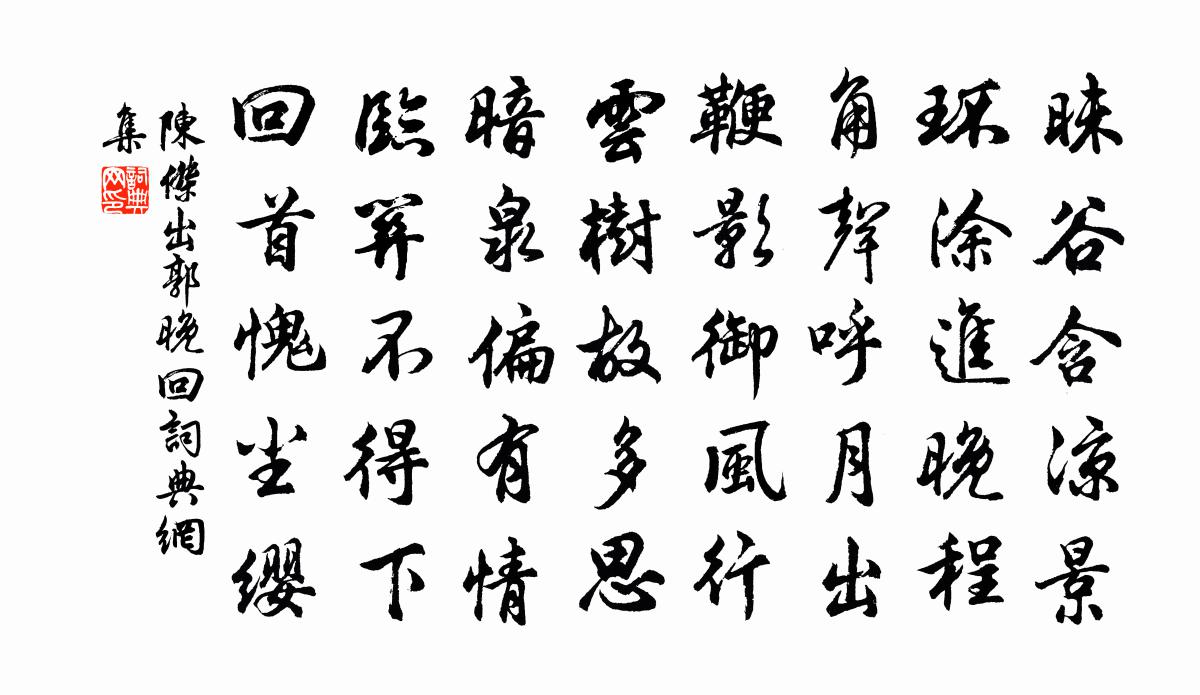 昧谷含涼景
环涂進晚程
角聲呼月出
鞭影御風行
雲樹故多思
暗泉偏有情
臨不得下
回首愧尘纓
陳傑出郭晚回詞典網
集
詞典网印